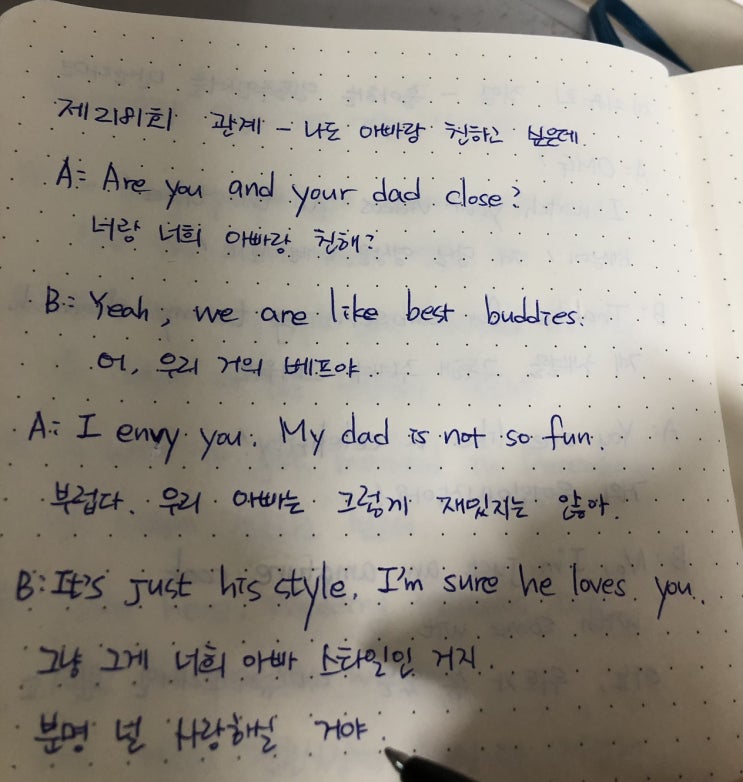 제2181회 관계 - 나도 아빠랑 친하고 싶은데.
A: Are you and your dad close?
너랑 너희 아빠랑 친해?
B: Yeah, we are like best buddies.
어, 우리 거의 베프야.
A: I envy you. My dad is not so fun.
부럽다. 우리 아빠는 그렇게 재밌지는 않아.
B: It's just his style. I'm sure he loves you.
그냥 그게 너희 아빠 스타일인 거지.
분명 널 사랑하실 거야.